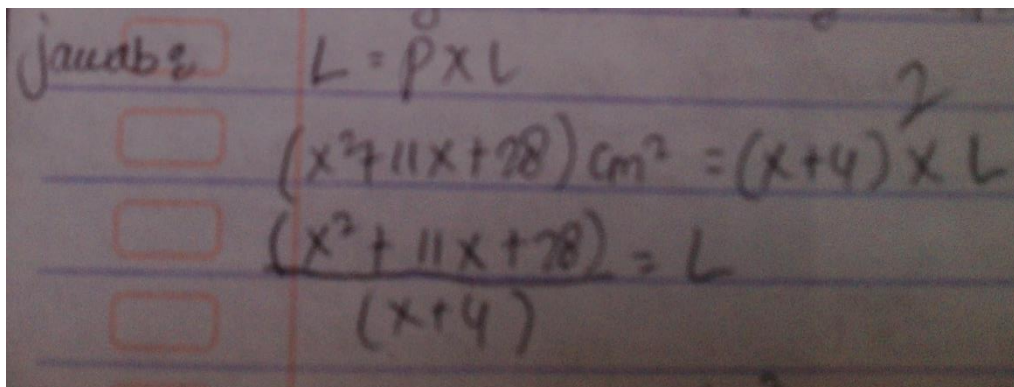 jawab : L = p x l
(x² + 11x + 28) cm² = (x+4)² x L
(x² + 11x + 28) = L
(x+4)